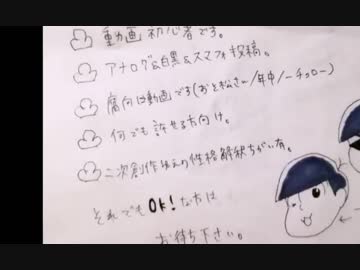 動画初心者です。
アナログ&白黒&スマフォ投稿。
腐向け動画です(おそ松さん/年中/一チョロー)
何でも許せる方向け。
二次創作故の性格解釈ちがい有。
それでもOK!な方は
お待ち下さい。